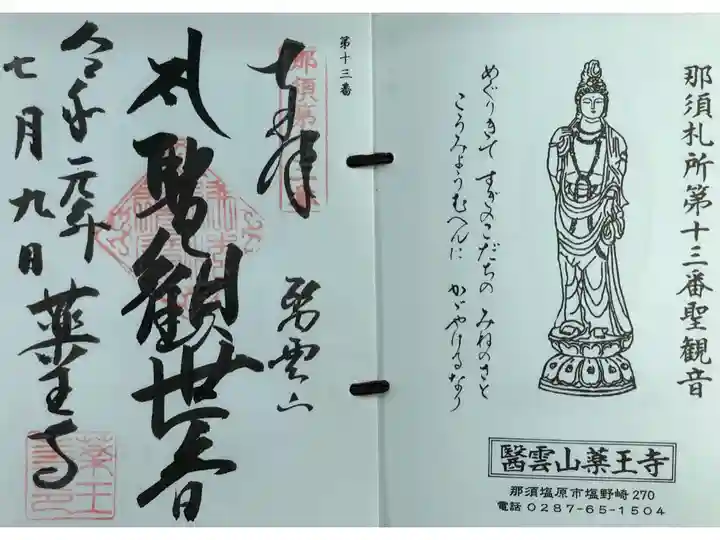 那須札所第十三番聖観音
めぐりきて すぎのこだちの みねのさと
こうみょうむへんに かゞやけるなり
醫雲山薬王寺
那須塩原市塩野崎270
電話 0287-65-1504
第十三番
奉拝
醫雲山
聖観世音
令和元年
七月九日
薬王寺